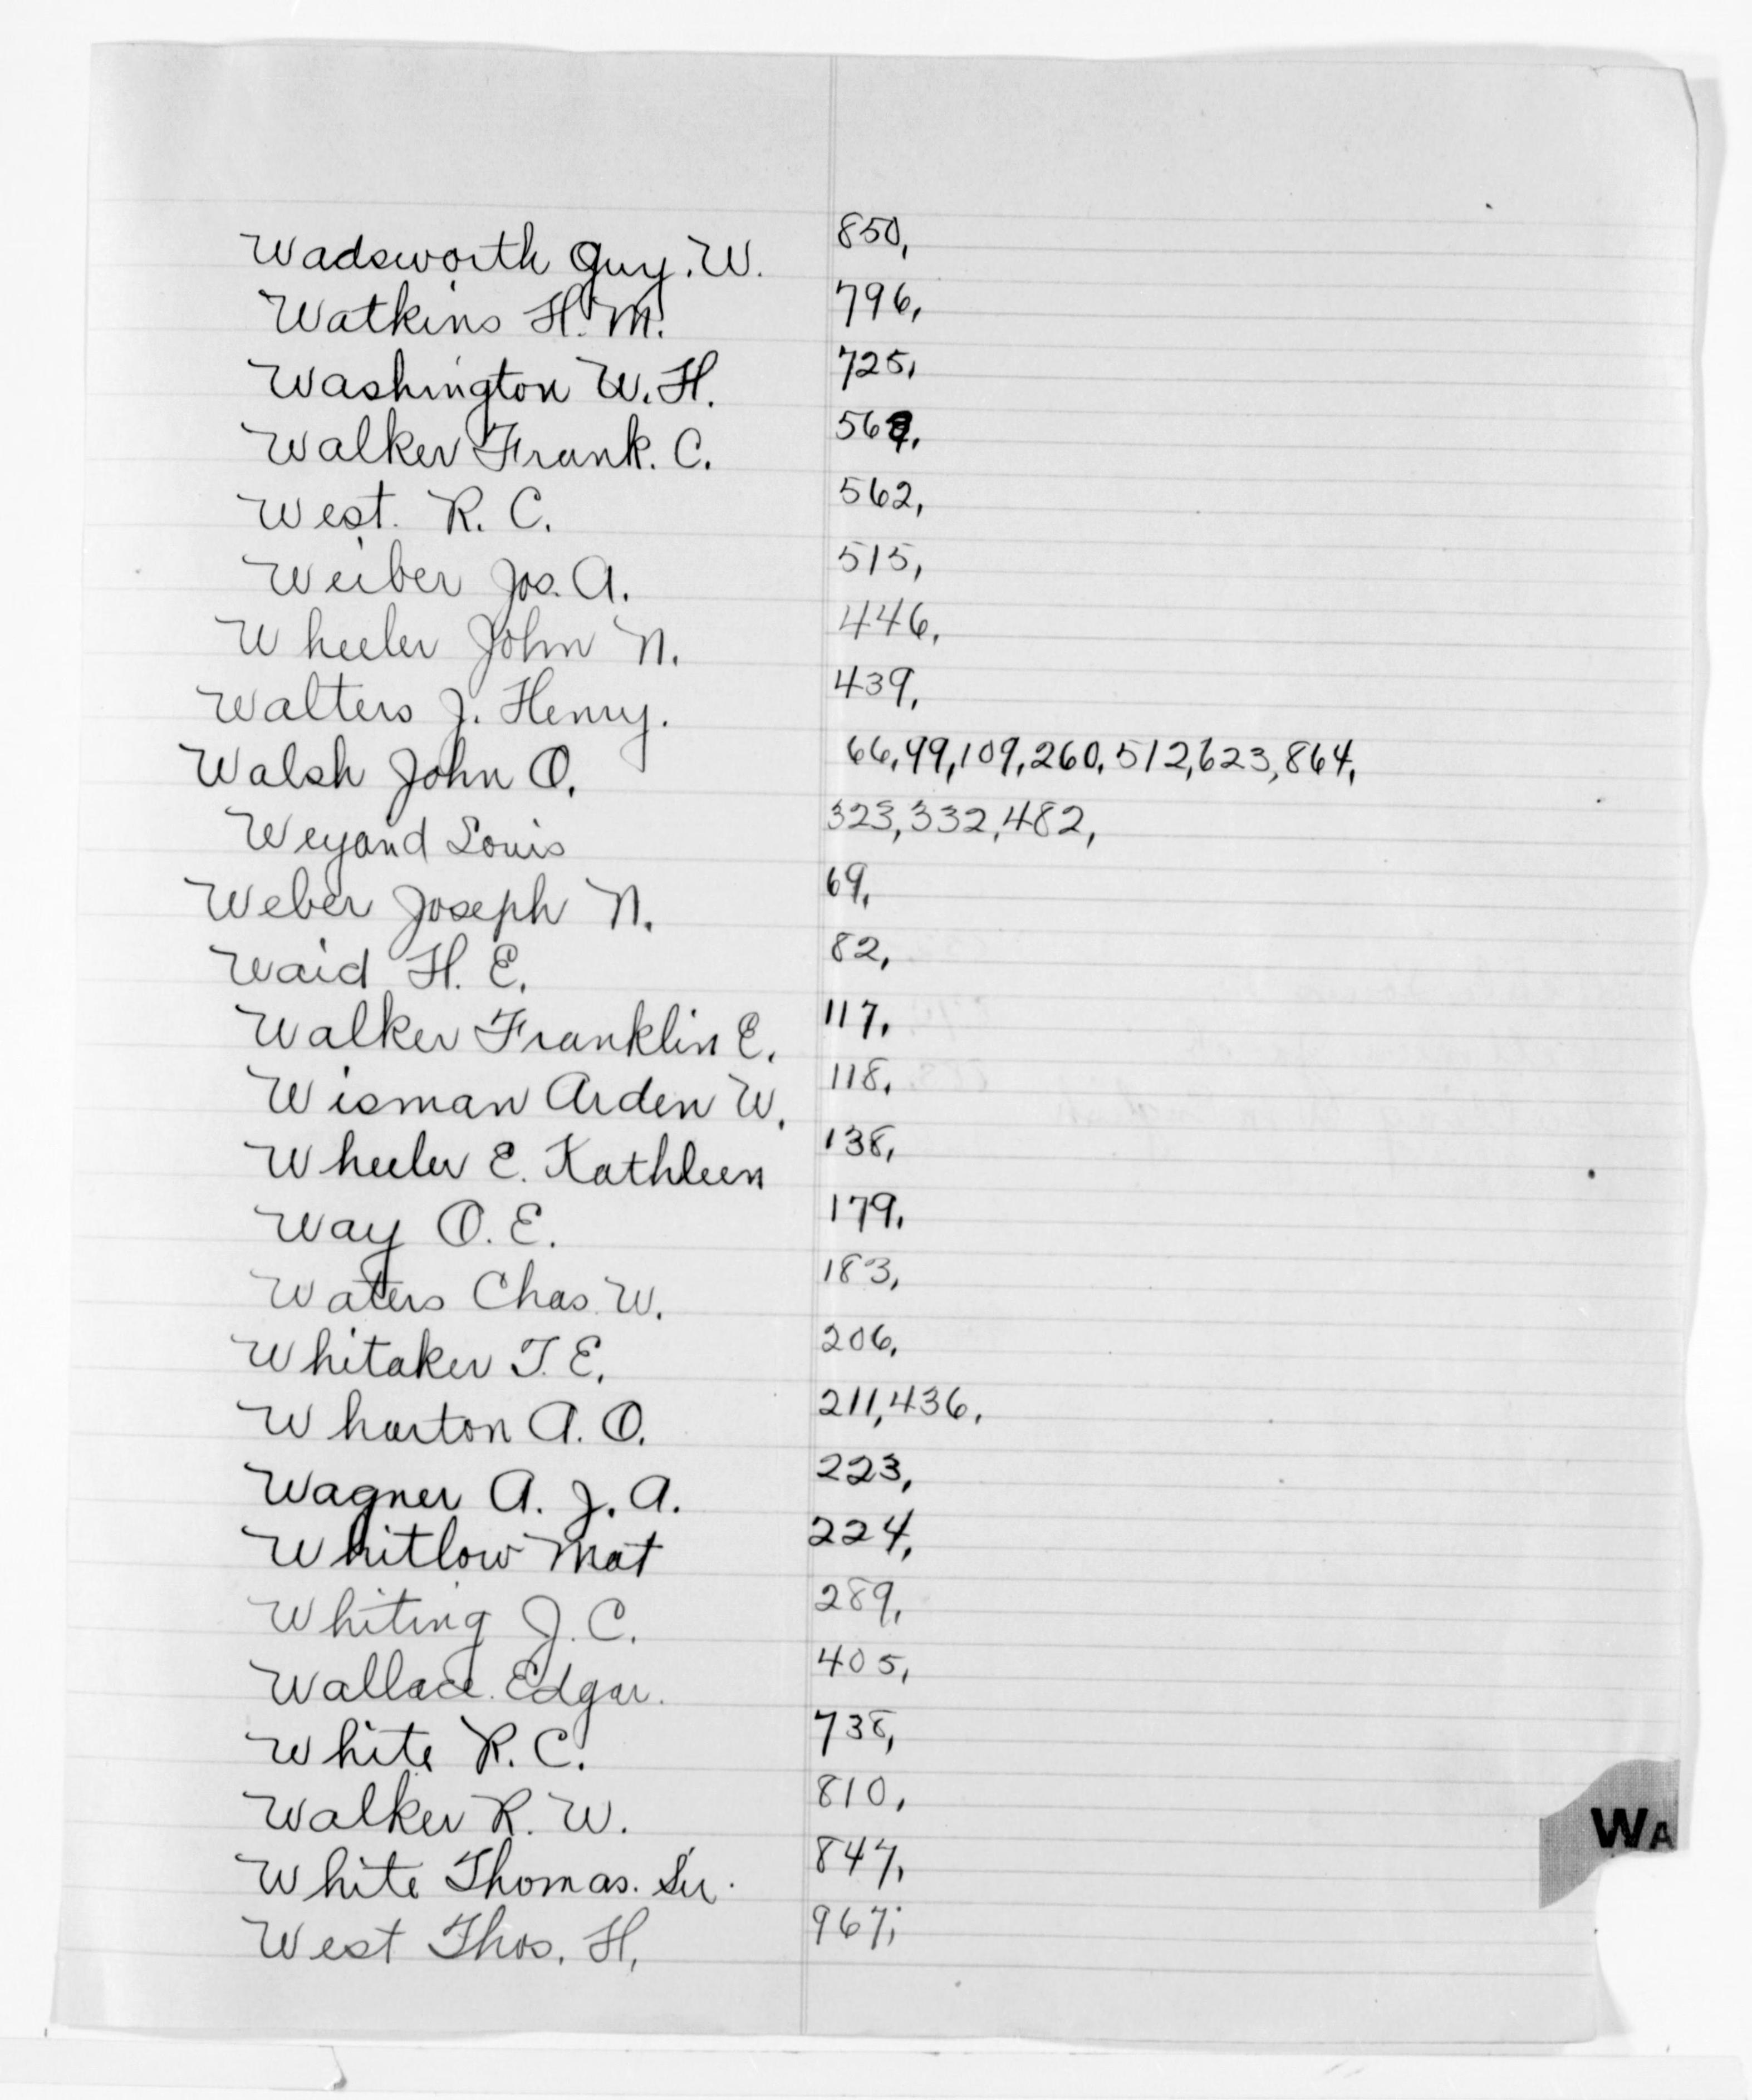 Wadsworth Guy. W. 850,
Watkins H. M. 796,
Washington W. H. 725,
Walker Frank. C.
West. R. C. 562,
Weiber Jos. A. 515,
Wheeler John N. 446,
Walters J. Henry. 439,
Walsh John O. 66, 99, 109, 260, 512, 623, 864,
Weyand Louis 323, 332, 482,
Weber Joseph N. 69,
Waid H. E. 82,
Walker Franklin E. 117,
Wisman Arden W. 118,
Wheeler E. Kathleen 138,
Way O. E. 179,
Waters Chas. W. 183,
Whitaker T. E. 206,
Wharton A. O. 211, 436,
Wagner A. J. A. 223,
Whitlow Mat 224,
Whiting J. C. 289,
Wallace. Edgar. 405,
White R. C. 738,
Walker R. W. 810,
WA
White Thomas. Sir. 847,
West Thos. H. 967,